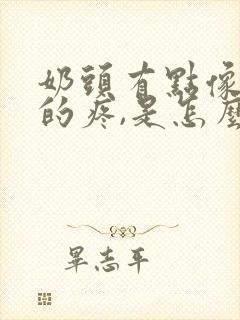 奶頭有點像
的疼,是怎麼
畢志平